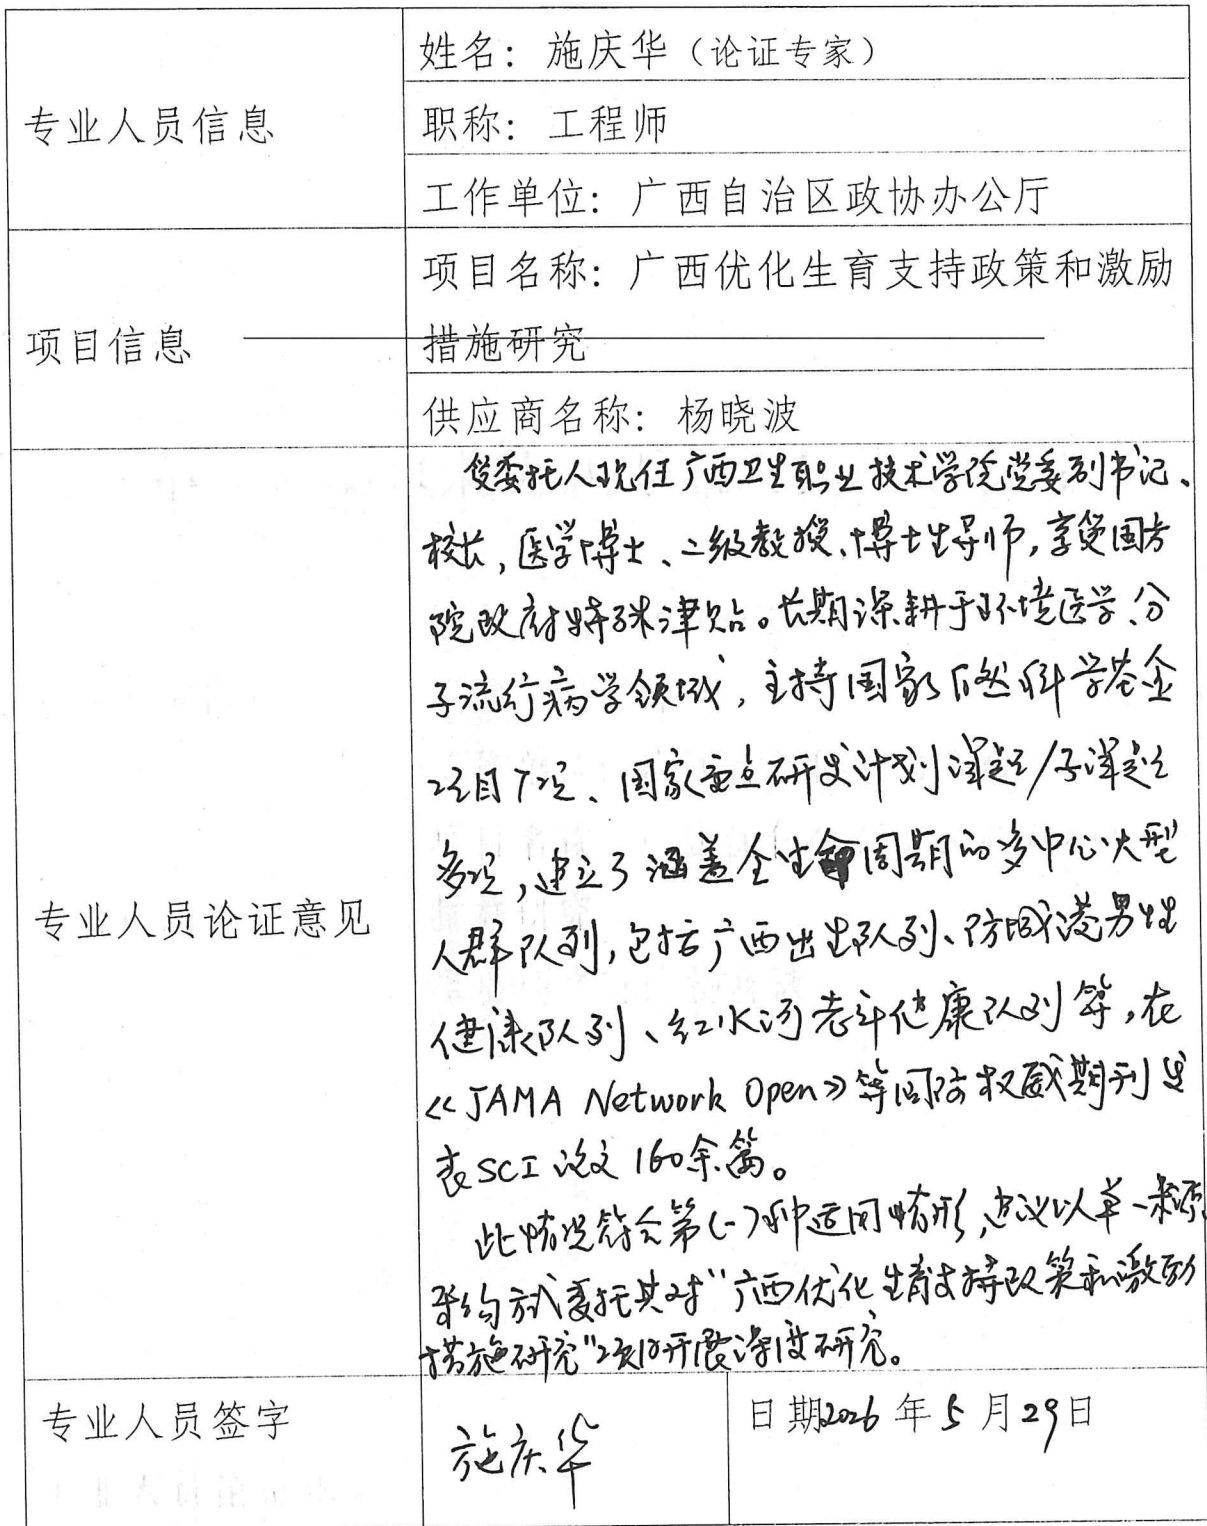 专业人员信息
姓名：施庆华（论证专家）
职称：工程师
工作单位：广西自治区政协办公厅
项目信息
项目名称：广西优化生育支持政策和激励
措施研究
供应商名称：杨晓波
专业人员论证意见
受委托人现任广西卫生职业技术学院党委副书记、
校长，医学博士、二级教授、博士生导师，享受国务
院政府特殊津贴。长期深耕于环境医学、分
子流行病学领域，主持国家自然科学基金
项目7项、国家重点研发计划课题/子课题
多项，建立了涵盖全生命周期的多中心大型
人群队列，包括广西出生队列、防城港男性
健康队列、红水河老年健康队列等，在
《JAMA Network Open》等国际权威期刊发
表SCI论文160余篇。
此情况符合第(一)种适用情形，建议以单一来源
采购方式委托其对“广西优化生育支持政策和激励
措施研究”项目开展深度研究。
专业人员签字
施庆华
日期2026年5月29日